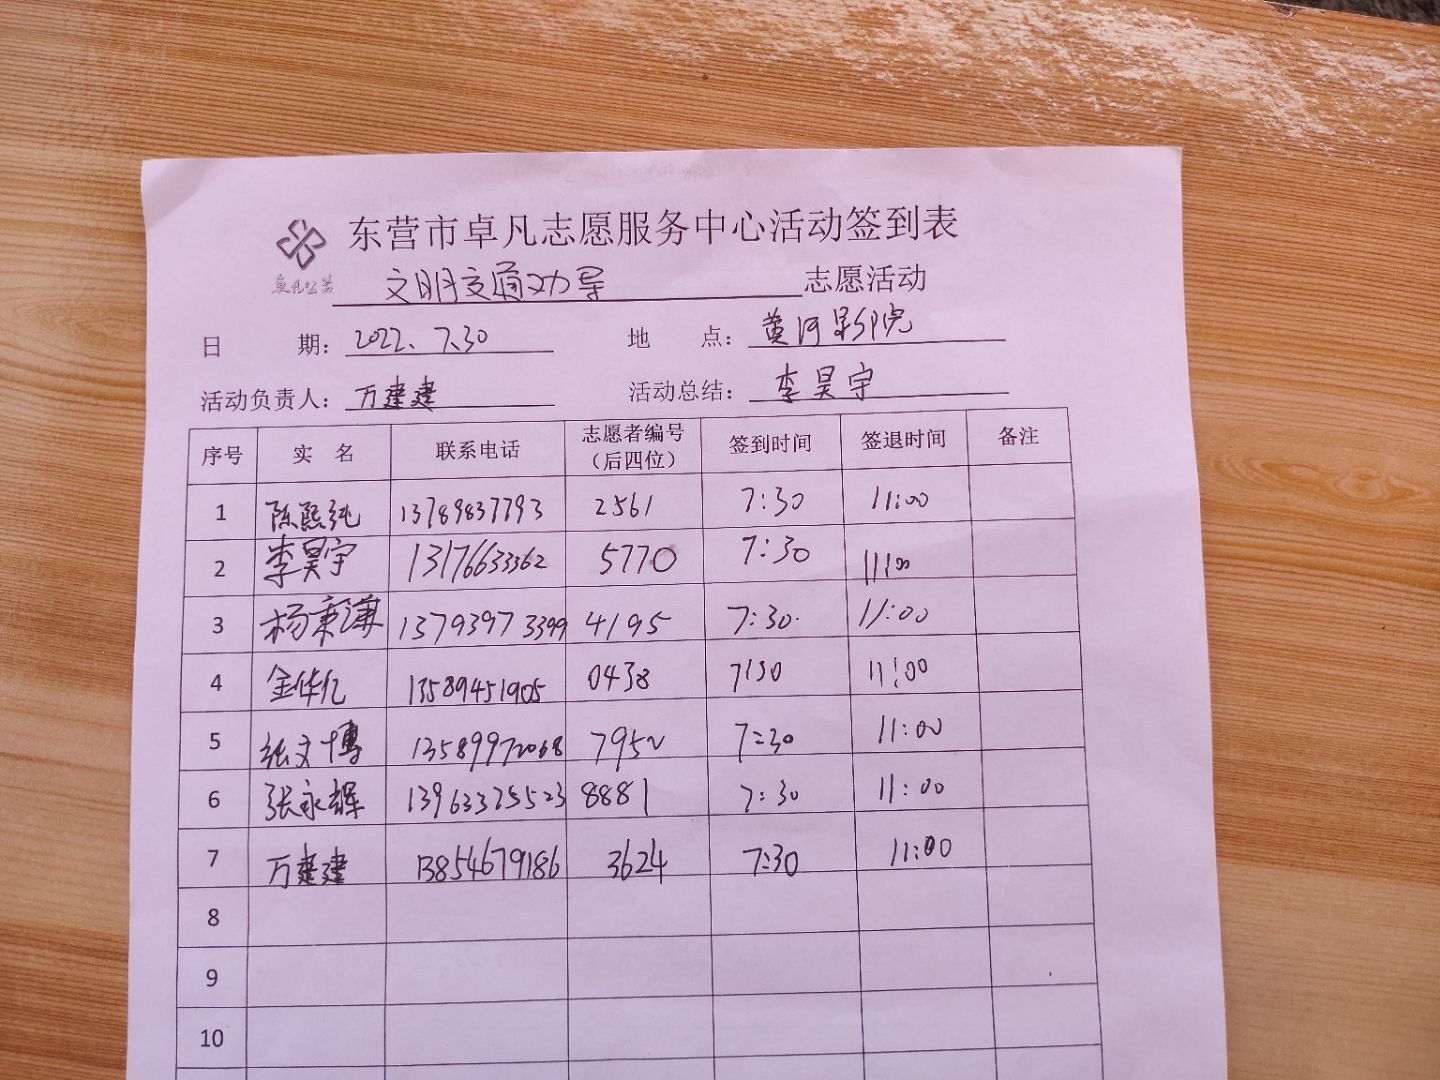 东营市卓凡志愿服务中心活动签到表
卓凡公益
文明交通劝导 志愿活动
日 期: 2022.7.30 地 点: 黄河影院
活动负责人: 万建建 活动总结: 李昊宇
序号 实 名 联系电话 志愿者编号（后四位） 签到时间 签退时间 备注
1 陈熙纯 13789837793 2561 7:30 11:00
2 李昊宇 13176633362 5770 7:30 11:00
3 杨秉谦 13793973399 4195 7:30 11:00
4 金华亿 13589451905 0438 7:30 11:00
5 张文博 13589972068 7952 7:30 11:00
6 张永辉 13963325523 8881 7:30 11:00
7 万建建 13854679186 3624 7:30 11:00
8
9
10